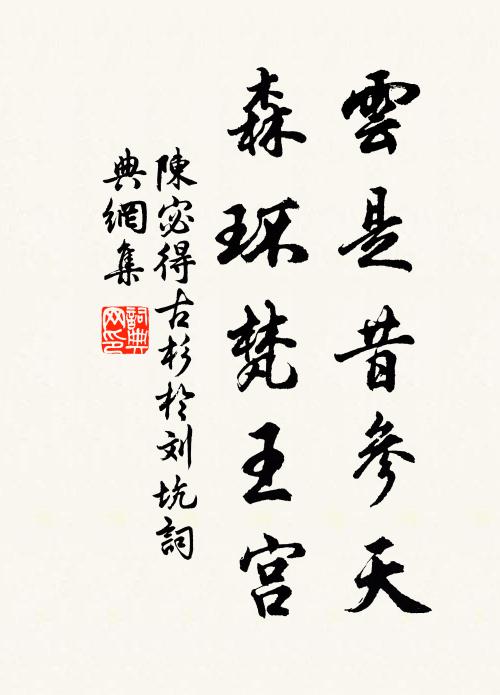 雲是昔參天
森环梵王宮
陳宓得古杉於刘坑詞
典網集
詞典
网印